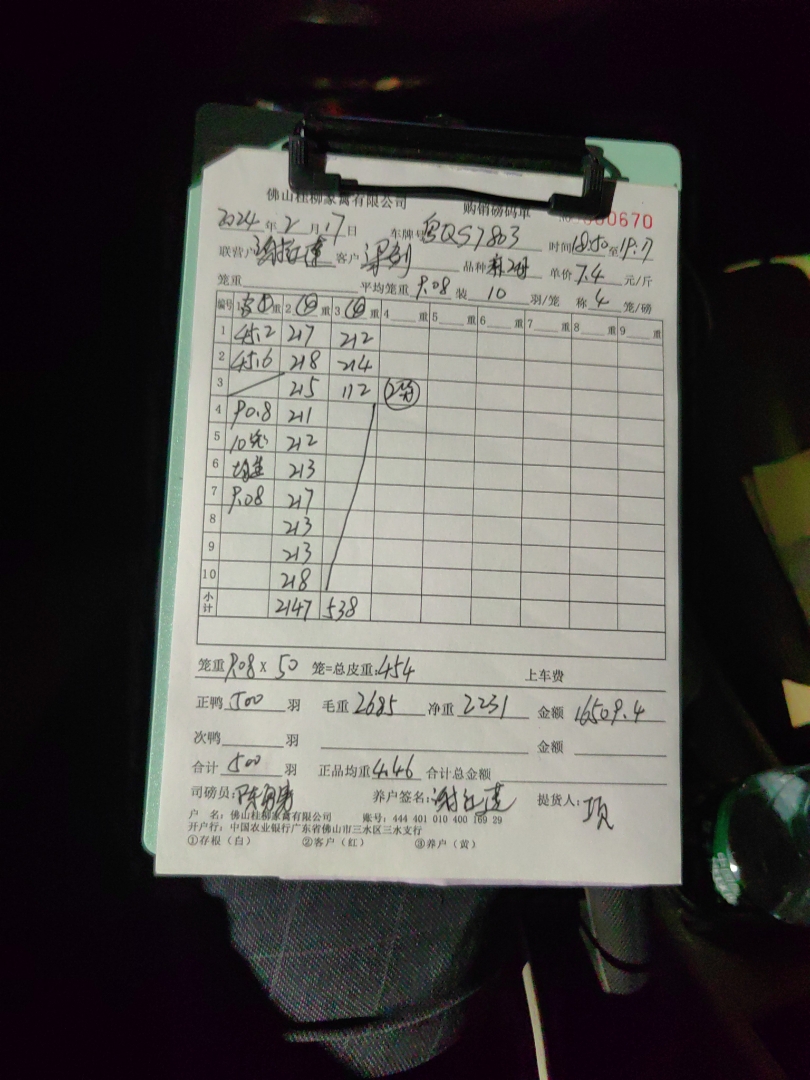 佛山桂柳家禽有限公司 购销磅码单 No 000670
2024年2月17日 车牌号粤QS7803 时间18:50至19:7
联营户 客户 品种 单价7.4元/斤
笼重 平均笼重9.08 装10羽/笼 称4笼/磅
编号 1 重 2 重 3 重 4 重 5 重 6 重 7 重 8 重 9 重
1 45.2 217 212
2 45.6 218 214
3 215 112 2笼
4 90.8 211
5 10笼 212
6 213
7 9.08 217
8 213
9 213
10 218
小计 2147 538
笼重9.08×50笼=总皮重:454 上车费
正鸭500羽 毛重2685 净重2231 金额16509.4
次鸭 羽 金额
合计500羽 正品均重4.46 合计总金额
司磅员: 养户签名: 提货人:项
户 名:佛山桂柳家禽有限公司 账号:444 401 010 400 169 29
开户行:中国农业银行广东省佛山市三水区三水支行
①存根(白) ②客户(红) ③养户(黄)